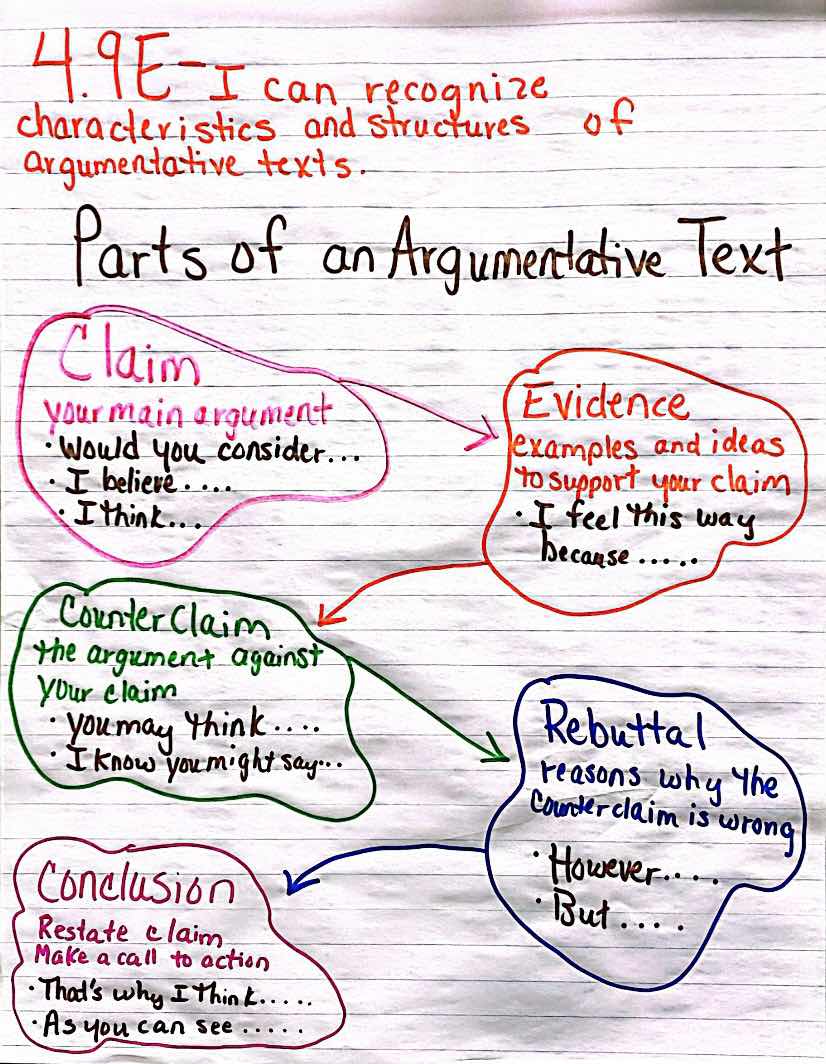 4.9E - I can recognize
characteristics and structures of
argumentative texts.
Parts of an Argumentative Text
Claim
your main argument
· Would you consider...
· I believe....
· I think...
Evidence
examples and ideas
to support your claim
· I feel this way
because.....
Counter Claim
the argument against
your claim
· you may think....
· I know you might say...
Rebuttal
reasons why the
Counterclaim is wrong
· However....
· But.....
Conclusion
Restate claim
Make a call to action
· That's why I think.....
· As you can see.....